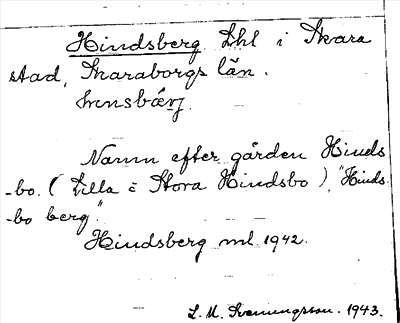 Hindsberg Lhl i Skara
stad, Skaraborgs län.
hinsbærj.
Namn efter gården Hinds
-bo. (Lilla o Stora Hindsbo), "Hinds
-bo berg".
Hindsberg ml 1942.
L. M. Svenungsson. 1943.